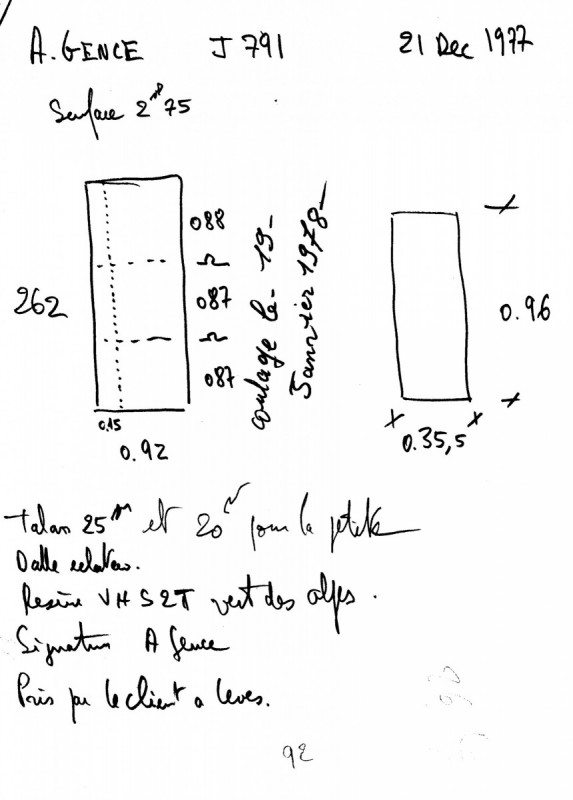 A. GENCE J 791 21 Dec 1977
Surface 2 m² 75
262
088
087
087
0,15
0.92
coulage le - 19 -
Janvier 1978 -
0.96
0.35,5
Talon 25 m et 20 pour la petite
Dalle
Resine VHS2T vert des alpes.
Signature A Gence
Pris par le client a
92